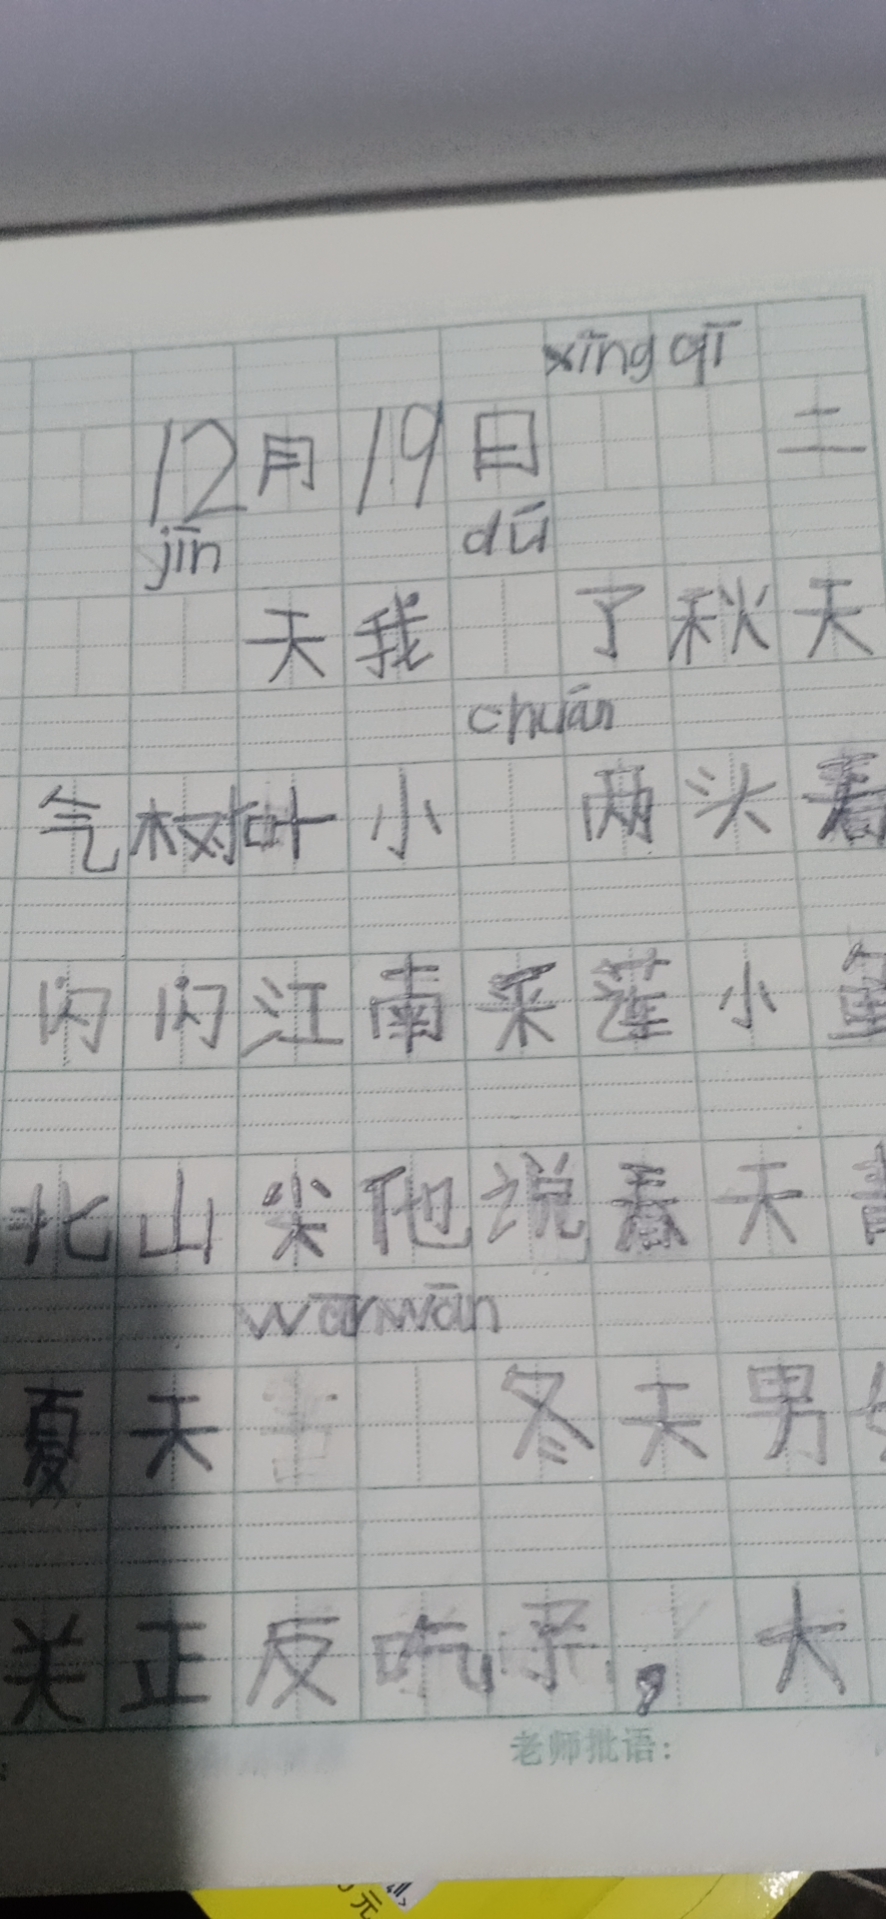 xīng qī
12月19日 二
jīn dú
天我 了秋天
chuán
气树叶小 两头看
闪闪江南采莲小鱼
北山尖他说春天青
wān wān
夏天 冬天男女
关正反吃了，大
老师批语：
元